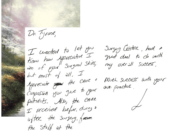 Dr. Tyrone,
I wanted to let you
know how appreciative I
am of your surgical skills,
but most of all, I
appreciate the care &
compassion you give to your
patients. Also, the care
I received before, during &
after the surgery, from
the staff at the
Surgery Center, had a
good deal to do with
my overall success.
Much success with your
new practice.